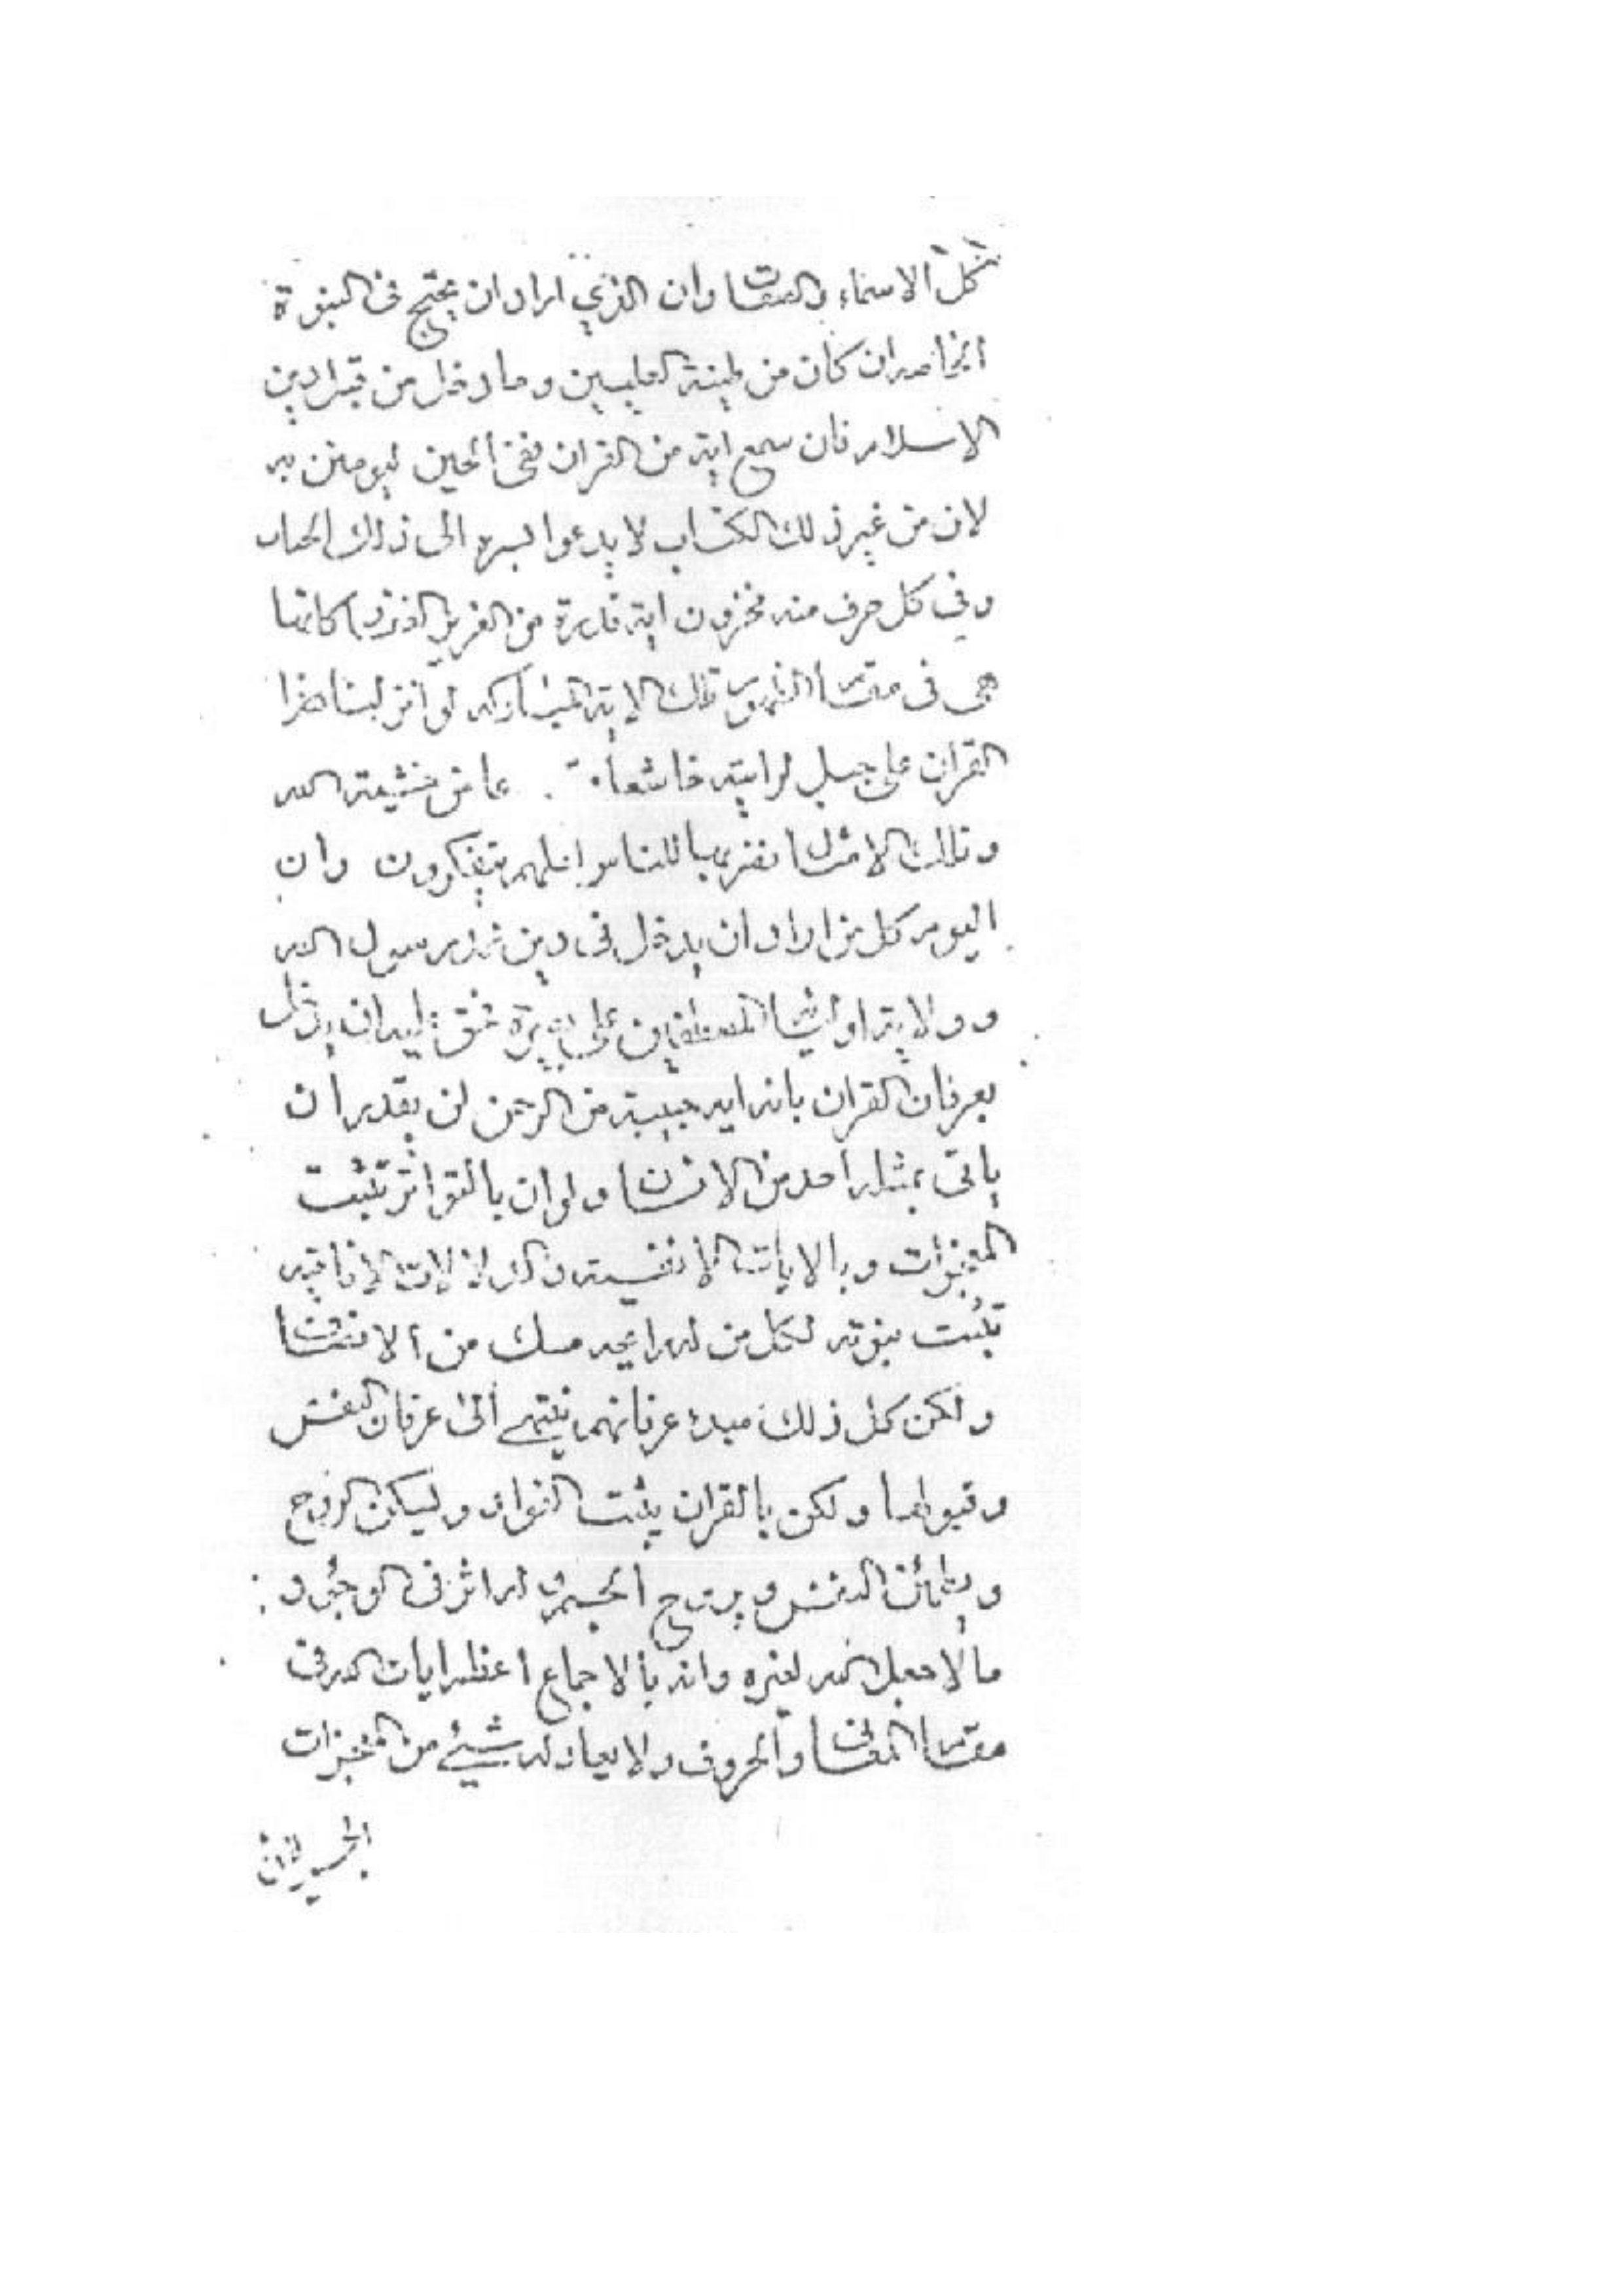 كل الاسماء والصفات وان الذي اراد ان يحتج في النبوة
الخاصه ان كان من طينة العليين وما دخل من قبل دين
الاسلام فان سمع ايته من القران ففي الحين ليومنن به
لان من غير ذلك الكتاب لا يدعوا لسره الى ذلك الجناب
وفي كل حرف منه مخزون اية قاهرة من العزيز كانها
هى فى مقام الظهور تلك الاية المباركه لو انزلنا هذا
القران على جبل لرايته خاشعا عا من خشيته الله
وتلك الامثال نضربها للناس لعلهم يتفكرون وان
اليوم كل من اراد ان يدخل فى دين محمد رسول الله
وولاية اوليائه المصطفين على بصيرة فحق عليه ان يدخل
بعرفان القران بانه ايه من الرحمن لن يقدر ان
ياتى بمثله احد من الانسان ولو ان بالتواتر تثبت
المعجزات وبالايات الانفسيته والدلالات الافاقيه
تثبت نبوته لكل من له رايحه مسك من الانصاف
ولكن كل ذلك مبدء عرفانهم ينتهى الى عرفان النفس
وقبولها ولكن بالقران يثبت الفواد وليسكن الروح
ويطمئن النفس و الجسم و له اثر فى الوجود
ما لا جعل الله لغيره وانه بالاجماع اعظم ايات الله فى
مقام المعانى والحروف ولا يعادله شيئ من المعجزات